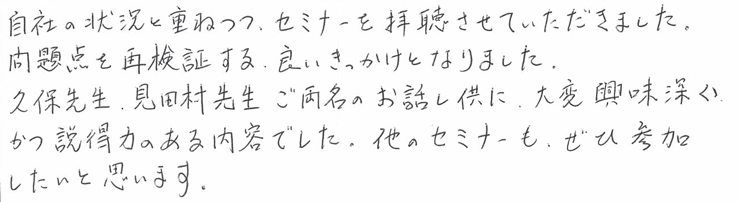 自社の状況と重ねつつ、セミナーを拝聴させていただきました。
問題点を再検証する、良いきっかけとなりました。
久保先生、見田村先生ご両名のお話し供に、大変興味深く、
かつ説得力のある内容でした。他のセミナーも、ぜひ参加
したいと思います。